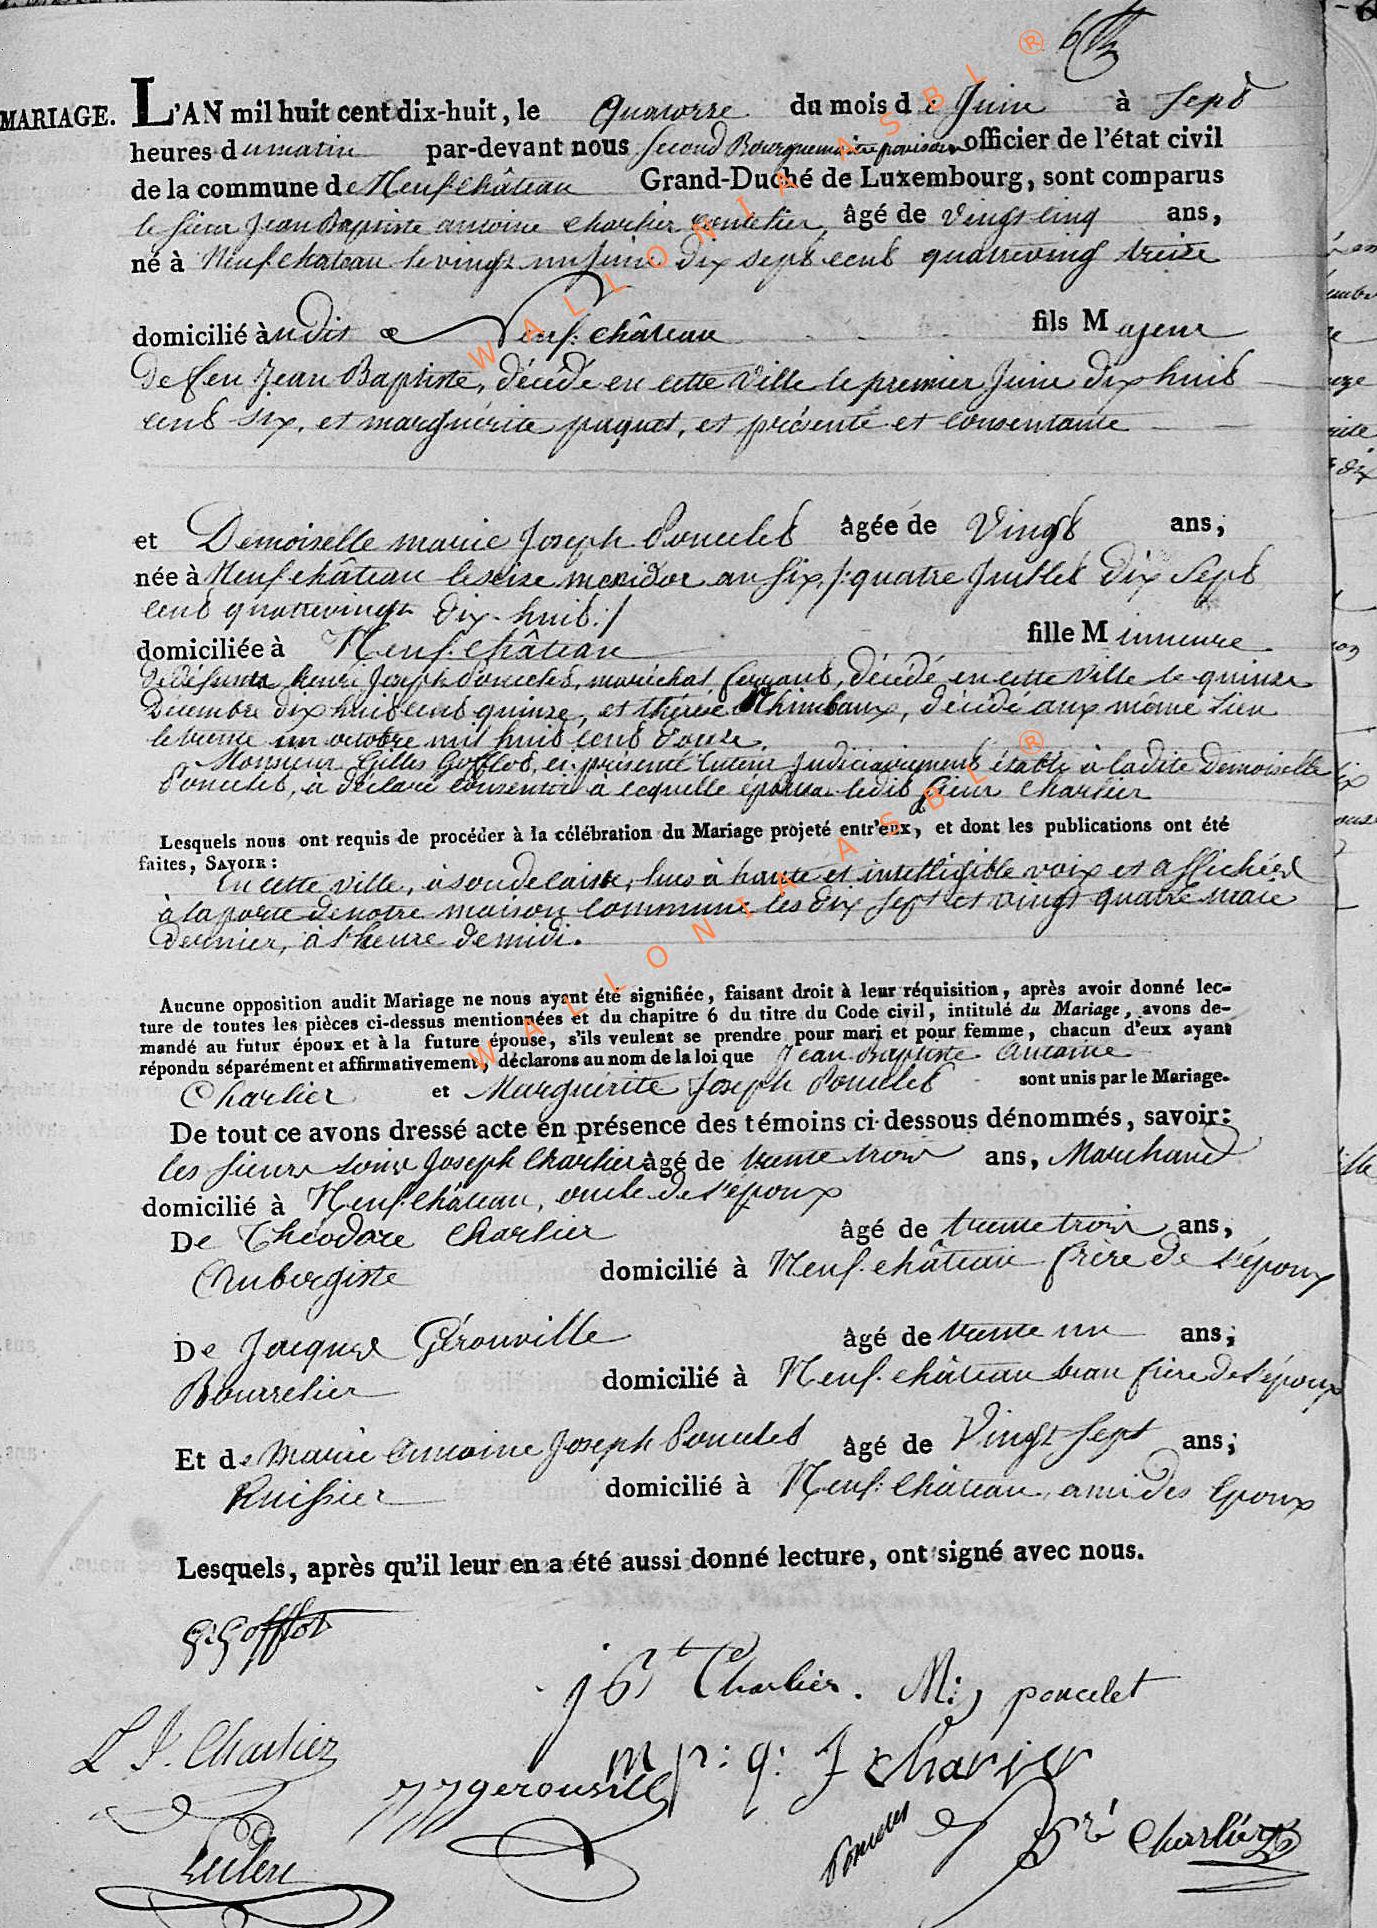 MARIAGE. L'AN mil huit cent dix-huit, le Quatorze du mois de Juin à Sept
heures dumatin par-devant nous Second Bourguemaitre provisoire officier de l'état civil
de la commune de Neufchâteau Grand-Duché de Luxembourg, sont comparus
le sieur Jean Baptiste antoine Charlier coutelier, âgé de Vingt cinq ans,
né à Neufchateau le vingt un Juin dix sept cent quatrevingt treize
domicilié àudit Neuf: château fils Majeur
de feu Jean Baptiste, décédé en cette Ville le premier Juin dix huit
cent six, et marguérite paquet, et présente et consentante
et Demoiselle marie Joseph Poncelet âgée de Vingt ans,
née à Neufchâteau le seize messidor an Six, /: quatre Juillet Dix Sept
cent quatrevingt dix-huit :/
domiciliée à Neuf-Château fille Mineure
de défunts henri Joseph Poncelet, maréchal ferrant, décédé en cette Ville le quinze
Décembre dix huit cent quinze, et thérèse Thimbaux, décédé aux même Lieu
le trente un octobre mil huit cent douze.
Monsieur Gilles Gofflot, ci présent tuteur Judiciairement établi à ladite Demoiselle
Poncelet, a déclaré consentir à ce qu'elle épouse ledit Sieur Charlier
Lesquels nous ont requis de procéder à la célébration du Mariage projeté entr'eux, et dont les publications ont été
faites, SAVOIR :
En cette ville, à son de caisse, lus à haute et intelligible voix et affichées
à la porte de notre maison Commune les dix sept et vingt quatre mai
dernier, à l'heure de midi.
Aucune opposition audit Mariage ne nous ayant été signifiée, faisant droit à leur réquisition, après avoir donné lec-
ture de toutes les pièces ci-dessus mentionnées et du chapitre 6 du titre du Code civil, intitulé du Mariage, avons de-
mandé au futur époux et à la future épouse, s'ils veulent se prendre pour mari et pour femme, chacun d'eux ayant
répondu séparément et affirmativement, déclarons au nom de la loi que Jean Baptiste Antoine
Charlier et Marguérite Joseph Poncelet sont unis par le Mariage.
De tout ce avons dressé acte en présence des témoins ci-dessous dénommés, savoir:
les sieurs Louis Joseph Charlier âgé de trente trois ans, Marchand
domicilié à Neuf-Château, oncle de l'époux
De Théodore Charlier âgé de trente trois ans,
Aubergiste domicilié à Neuf-château frère de l'époux
De Jacques Gérouville âgé de trente un ans;
Bourrelier domicilié à Neuf-château beau frère de l'époux
Et de Marie Antoine Joseph Poncelet âgé de Vingt Sept ans;
huissier domicilié à Neuf: Château, ami des Epoux
Lesquels, après qu'il leur en a été aussi donné lecture, ont signé avec nous.
G: Gofflot
j Bte Charlier. M: j poncelet
L J. Charlier
m p: q: J charier
JJ gerouvill
Poncelet
Charlier
WALLONIA ASBL ®
WALLONIA ASBL ®